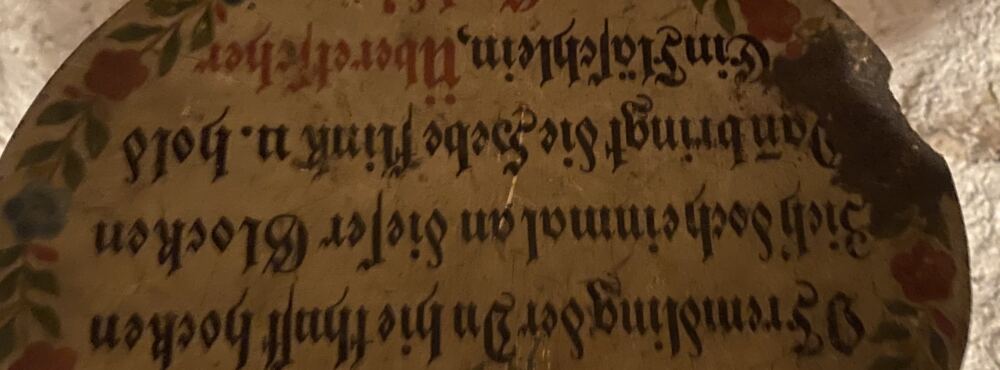 O Fremdling der Du hie thust hocken
Zieh doch einmal an dieser Glocken
Dañ bringt die Hebe flink u. hold
Ein Fläschlein, Überetscher